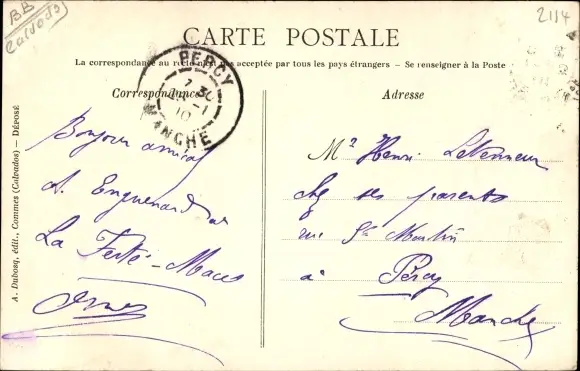 BB
Calvados
2114
CARTE POSTALE
La correspondance au recto n'est pas acceptée par tous les pays étrangers — Se renseigner à la Poste
PERCY
MANCHE
Correspondance
Bonjour amical
A. Enguerrand
La Ferté-Macé
Orne
A. Dubosq, édit., Commes (Calvados) — DÉPOSÉ
Adresse
Mr Henri Letenneur
chez ses parents
rue St Martin
à Percy
Manche